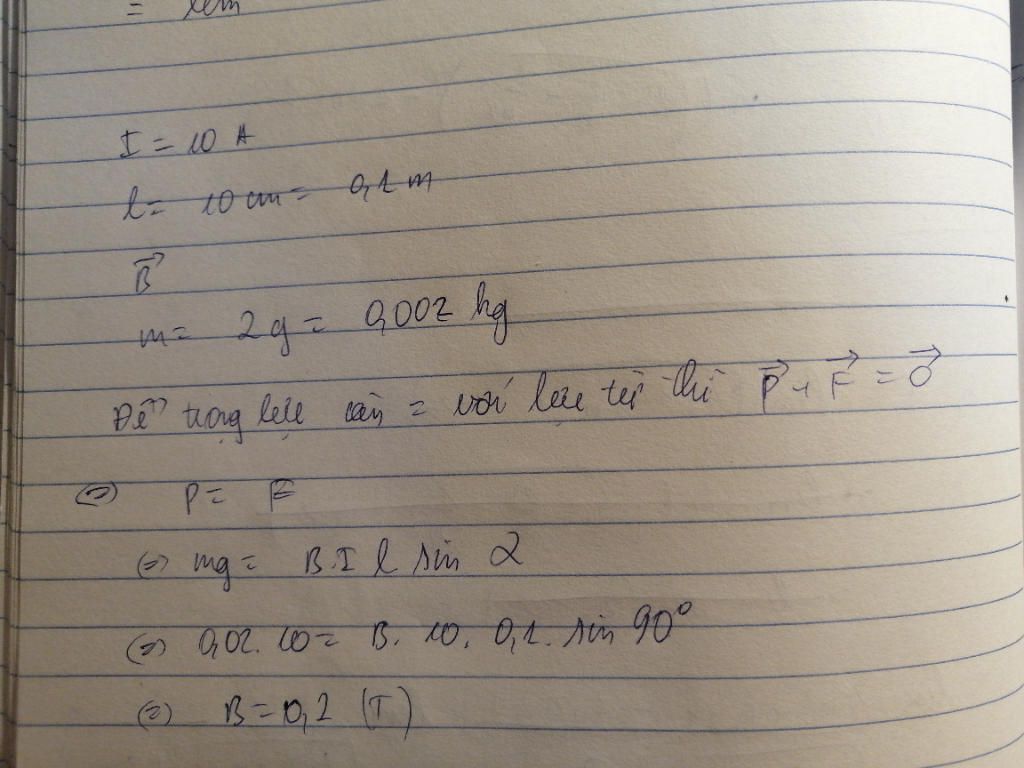 I = 10 A
l = 10 cm = 0,1 m
B⃗
m = 2g = 0,002 kg
Để trọng lực cân = với lực từ thì P⃗ + F⃗ = O⃗
(=) P = F
(=) mg = B.I l sin α
(=) 0,02. 10 = B. 10. 0,1. sin 90°
(=) B = 0,2 (T)